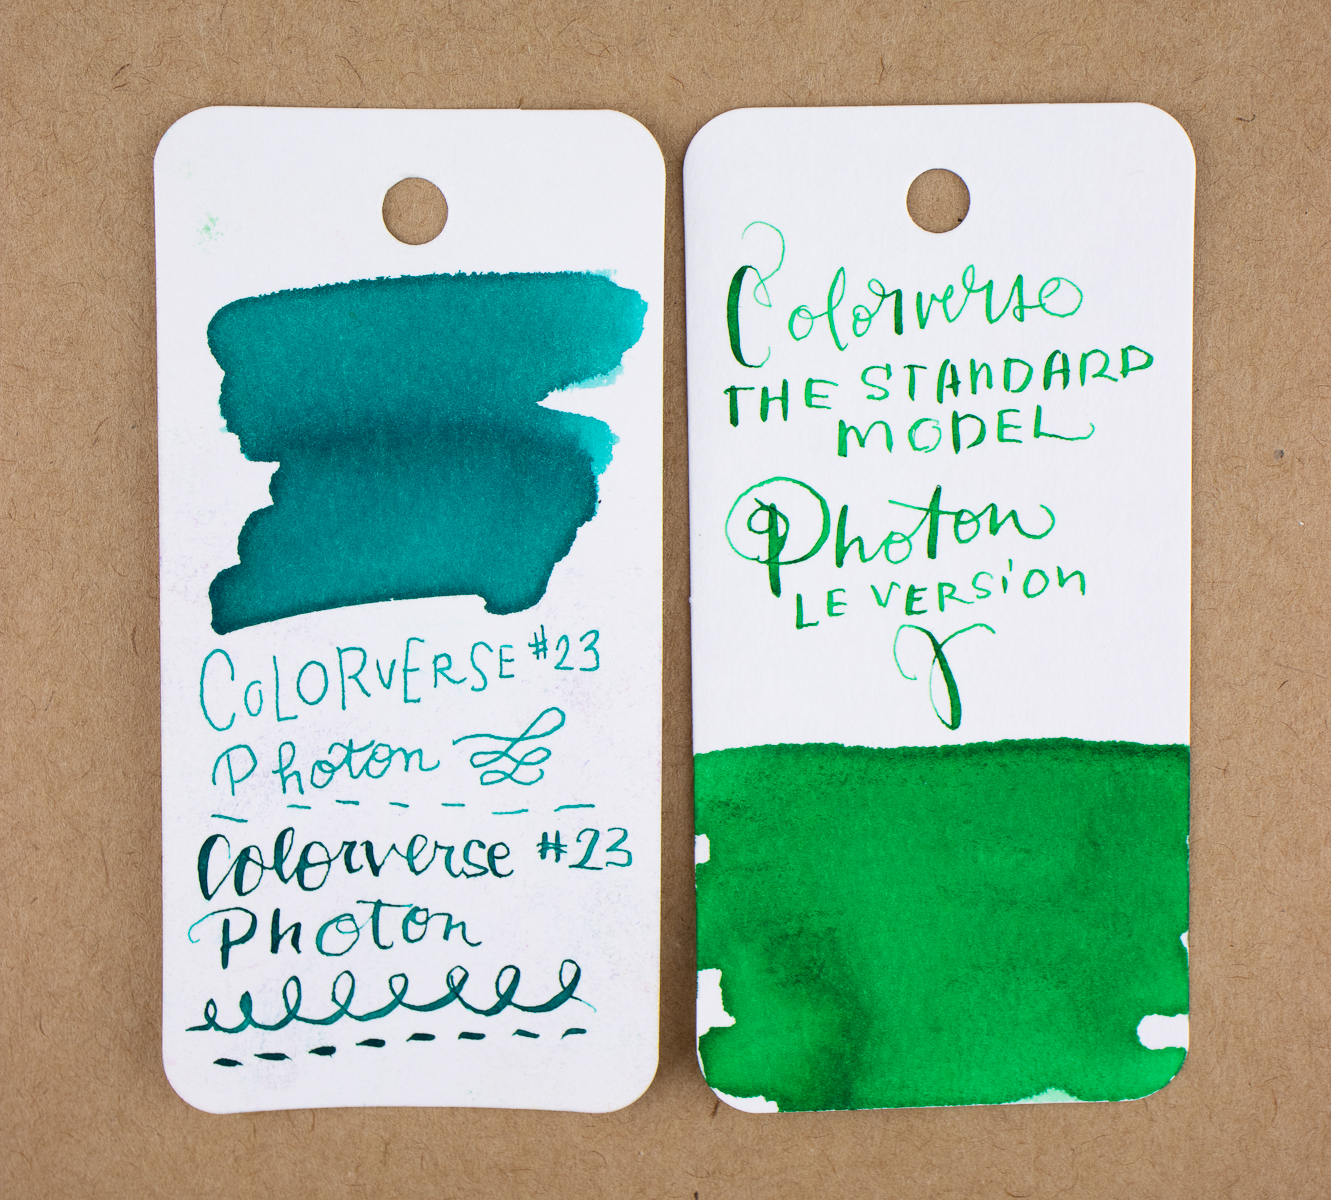 COLORVERSE #23
Photon
Colorverse #23
Photon
Colorverse
THE STANDARD
MODEL
Photon
LE VERSION
γ